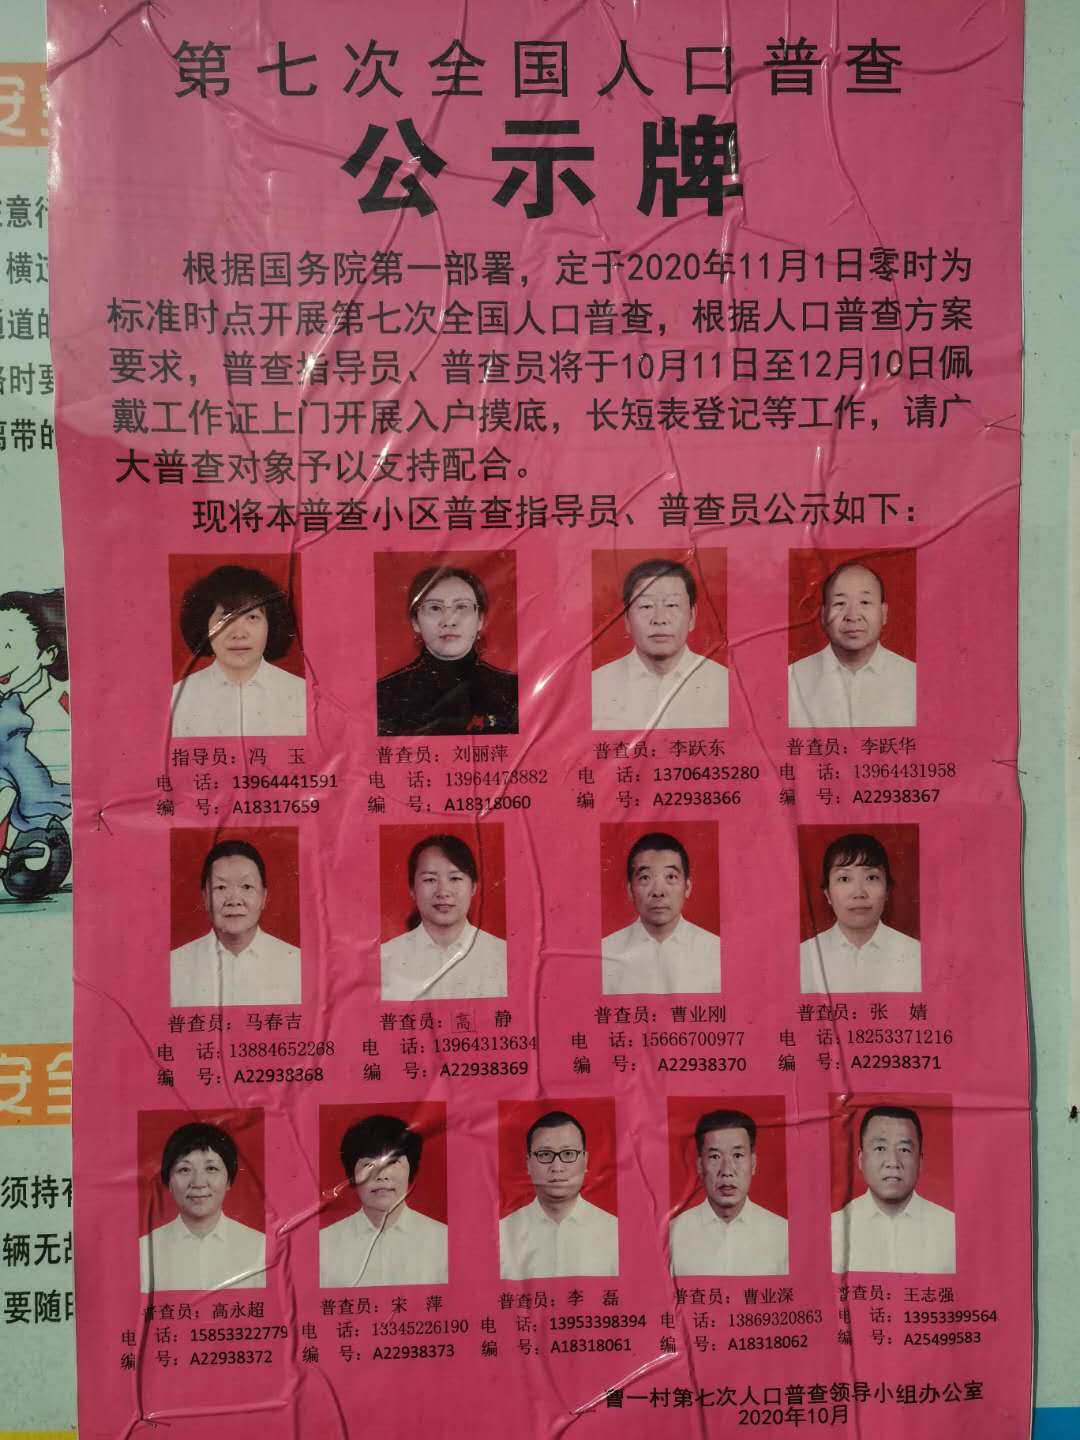 第七次全国人口普查
公示牌
根据国务院第一部署，定于2020年11月1日零时为
标准时点开展第七次全国人口普查，根据人口普查方案
要求，普查指导员、普查员将于10月11日至12月10日佩
戴工作证上门开展入户摸底，长短表登记等工作，请广
大普查对象予以支持配合。
现将本普查小区普查指导员、普查员公示如下：
指导员：冯 玉 普查员：刘丽萍 普查员：李跃东 普查员：李跃华
电 话：13964441591 电 话：13964473882 电 话：13706435280 电 话：13964431958
编 号：A18317659 编 号：A18318060 编 号：A22938366 编 号：A22938367
普查员：马春吉 普查员：高 静 普查员：曹业刚 普查员：张 婧
电 话：13884652268 电 话：13964313634 电 话：15666700977 电 话：18253371216
编 号：A22938368 编 号：A22938369 编 号：A22938370 编 号：A22938371
普查员：高永超 普查员：宋 萍 普查员：李 磊 普查员：曹业深 普查员：王志强
电 话：15853322779 电 话：13345226190 电 话：13953398394 电 话：13869320863 电 话：13953399564
编 号：A22938372 编 号：A22938373 编 号：A18318061 编 号：A18318062 编 号：A25499583
曹一村第七次人口普查领导小组办公室
2020年10月
安全
意行
横过
道的
时要
离带的
安全
须持有
辆无故
要随时